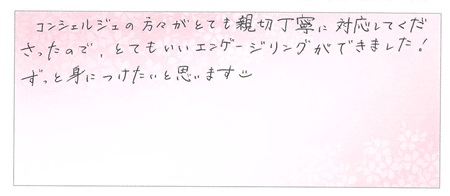 コンシェルジュの方々がとても親切丁寧に対応してくだ
さったので、とてもいいエンゲージリングができました!
ずっと身につけたいと思います